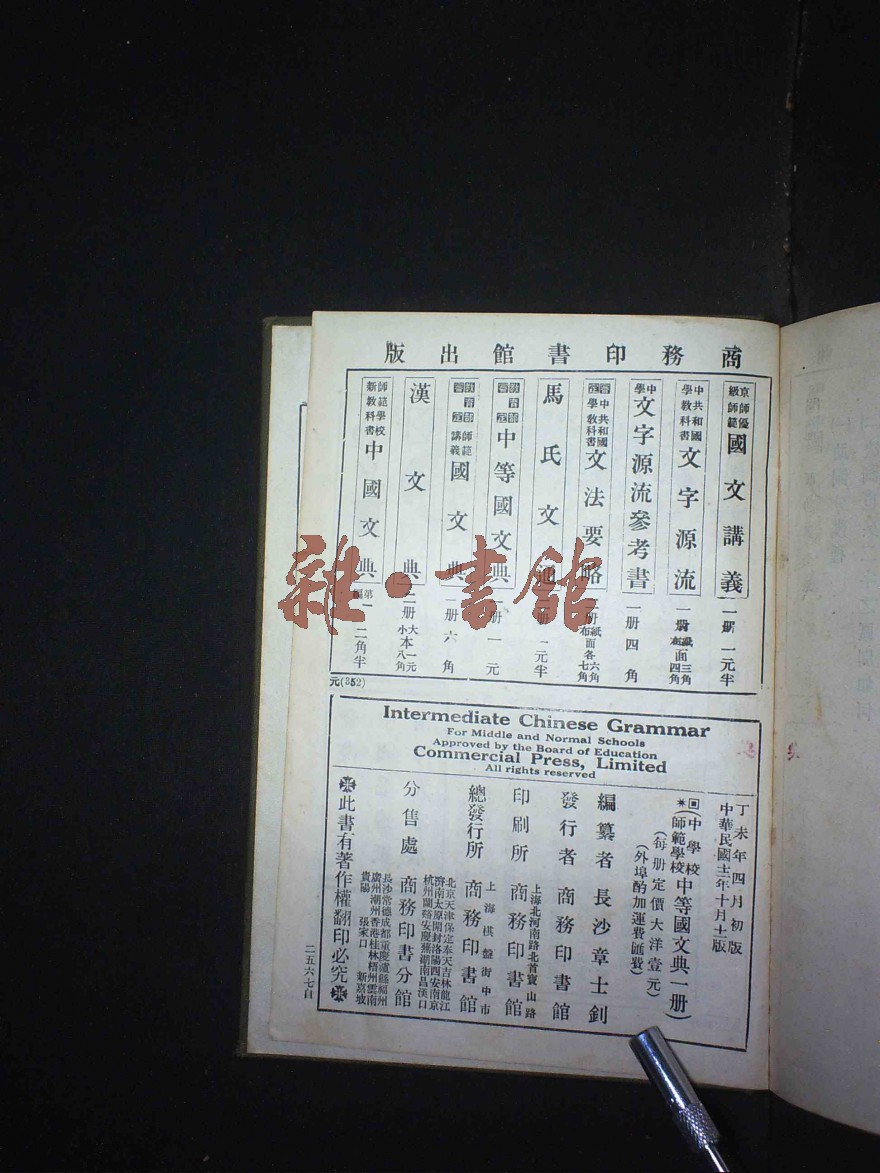 商務印書館出版
京師優級師範 國文講義 一册 一元半
中學共和國教科書 文字源流 一册 紙面三角 布面四角
中學 文字源流參考書 一册 四角
中學共和國教科書 文法要略 册 紙面各六角 布面各七角
馬氏文通 册 元半
中等國文典 一册 一元
師範講義 國文典 一册 六角
漢文典 二册 大本一元 小本八角
師範學校新教科書 中國文典 第一編 二角半
元(352)
Intermediate Chinese Grammar
For Middle and Normal Schools
Approved by the Board of Education
Commercial Press, Limited
All rights reserved
丁未年四月初版
中華民國十二年十月十二版
(中學校師範學校 中等國文典一册)
(每册定價大洋壹元)
(外埠酌加運費匯費)
編纂者 長沙章士釗
發行者 商務印書館
印刷所 上海北河南路北首寶山路 商務印書館
總發行所 上海棋盤街中市 商務印書館
分售處 商務印書分館
北京天津保定奉天吉林龍江
濟南太原開封洛陽西安南京
杭州蘭谿安慶蕪湖南昌漢口
長沙常德成都重慶瀘縣福州
廣州潮州香港桂林梧州雲南
貴陽 張家口 新嘉坡
此書有著作權翻印必究
二五六七自
雜·書館